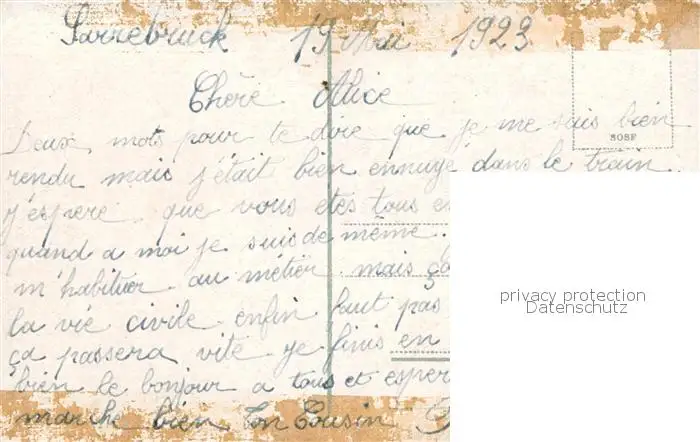 Sarrebruck 19 Mai 1923
Chère Alice
Deux mots pour te dire que je me suis bien
NOBF
rendu mais j'était bien ennuyé dans le train
j'espere que vous etes tous en
quand a moi je suis de même.
m'habituer au métier mais ça
la vie civile enfin faut pas
ça passera vite je finis en
bien le bonjour a tous et esper
marche bien ton Cousin
privacy protection
Datenschutz